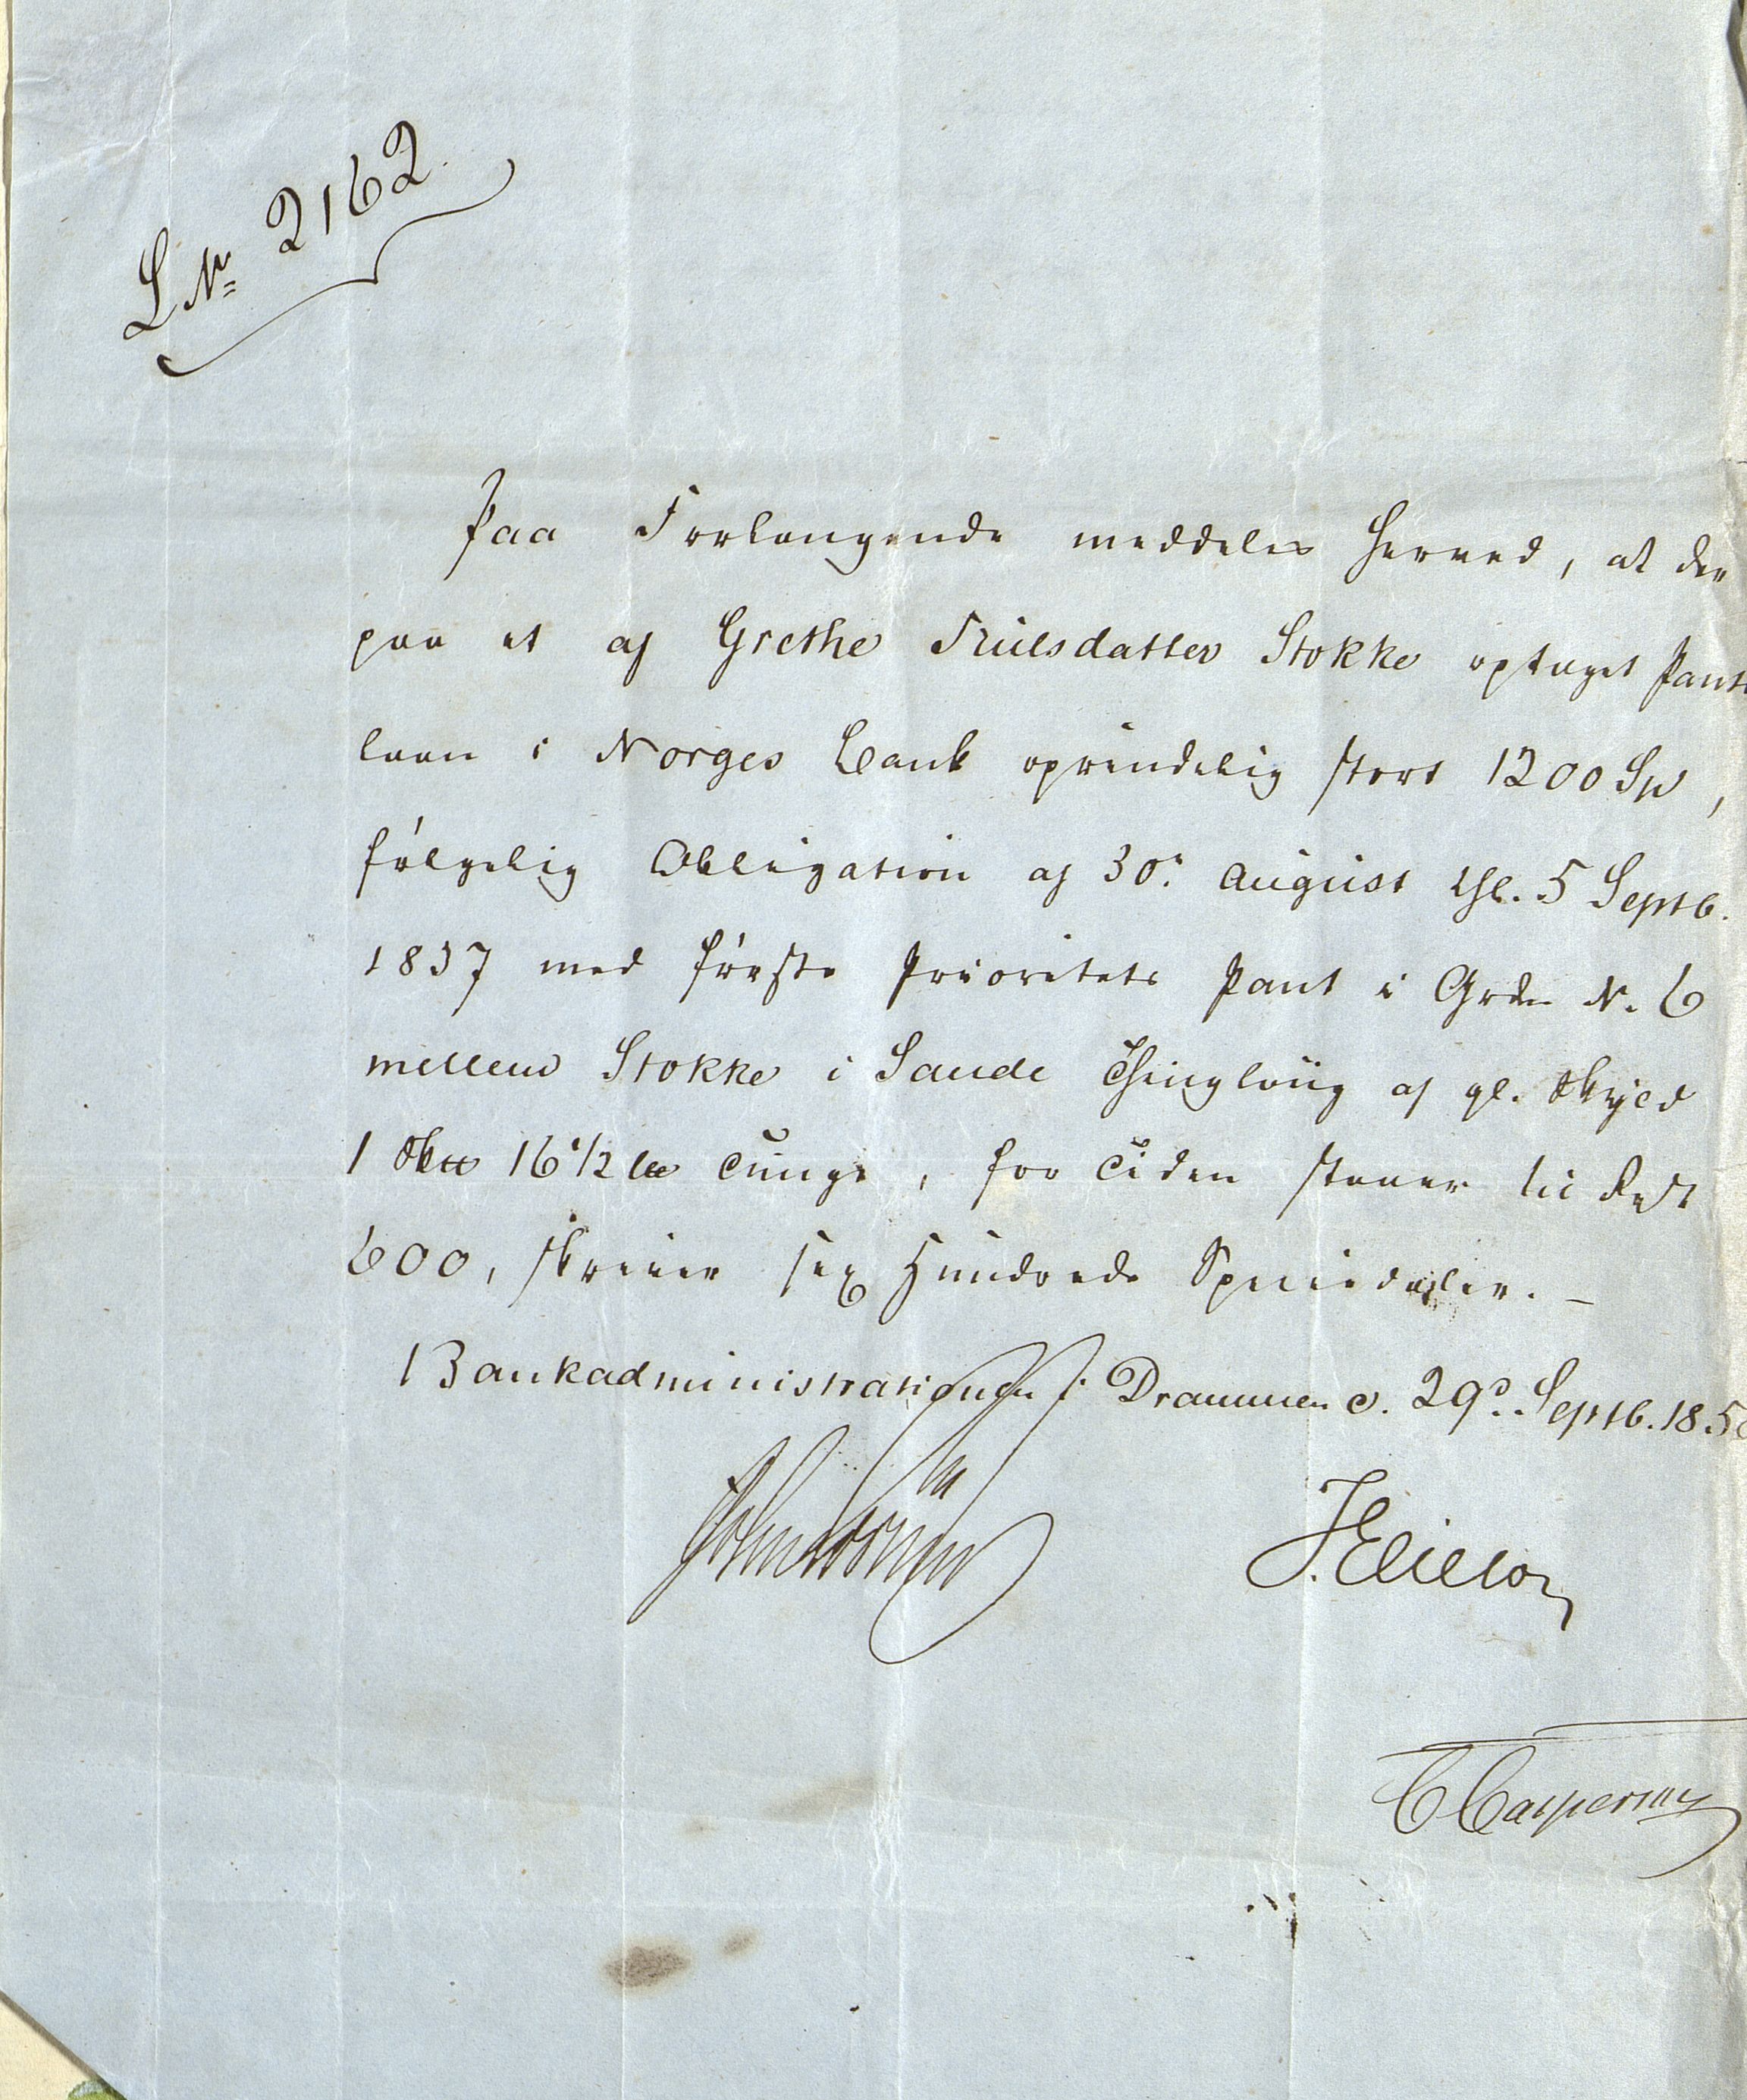 L Nr 2162
Paa Forlangende meddeles herved, at der
paa et af Grethe Trulsdatter Stokke optaget Pante
laan i Norges Bank oprindelig stort 1200 Sp,
følgelig Obligation af 30. August thl. 5 Septb.
1837 med første Prioritets Pant i Grdn N. 6
mellem Stokke i Sande Thinglaug af gl. Skyld
1 Skt 16 1/2 Tunge, for Tiden staaer til Rest
600, skriver sex Hundrede Speciedaler. –
Bankadministrationen i Drammen d. 29d. Septb. 185
J. Ellefsen
C Caspersen